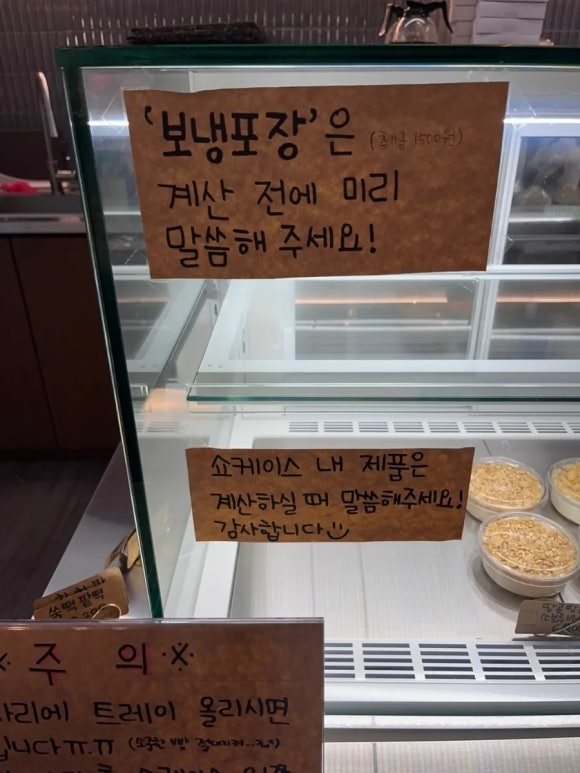 '보냉포장'은 (추가금 1500원)
계산 전에 미리
말씀해 주세요!
쇼케이스 내 제품은
계산하실 때 말씀해주세요!
감사합니다
쑥떡팥떡
※ 주 의 ※
자리에 트레이 올리시면
니다ㅠ.ㅠ (소중한 빵